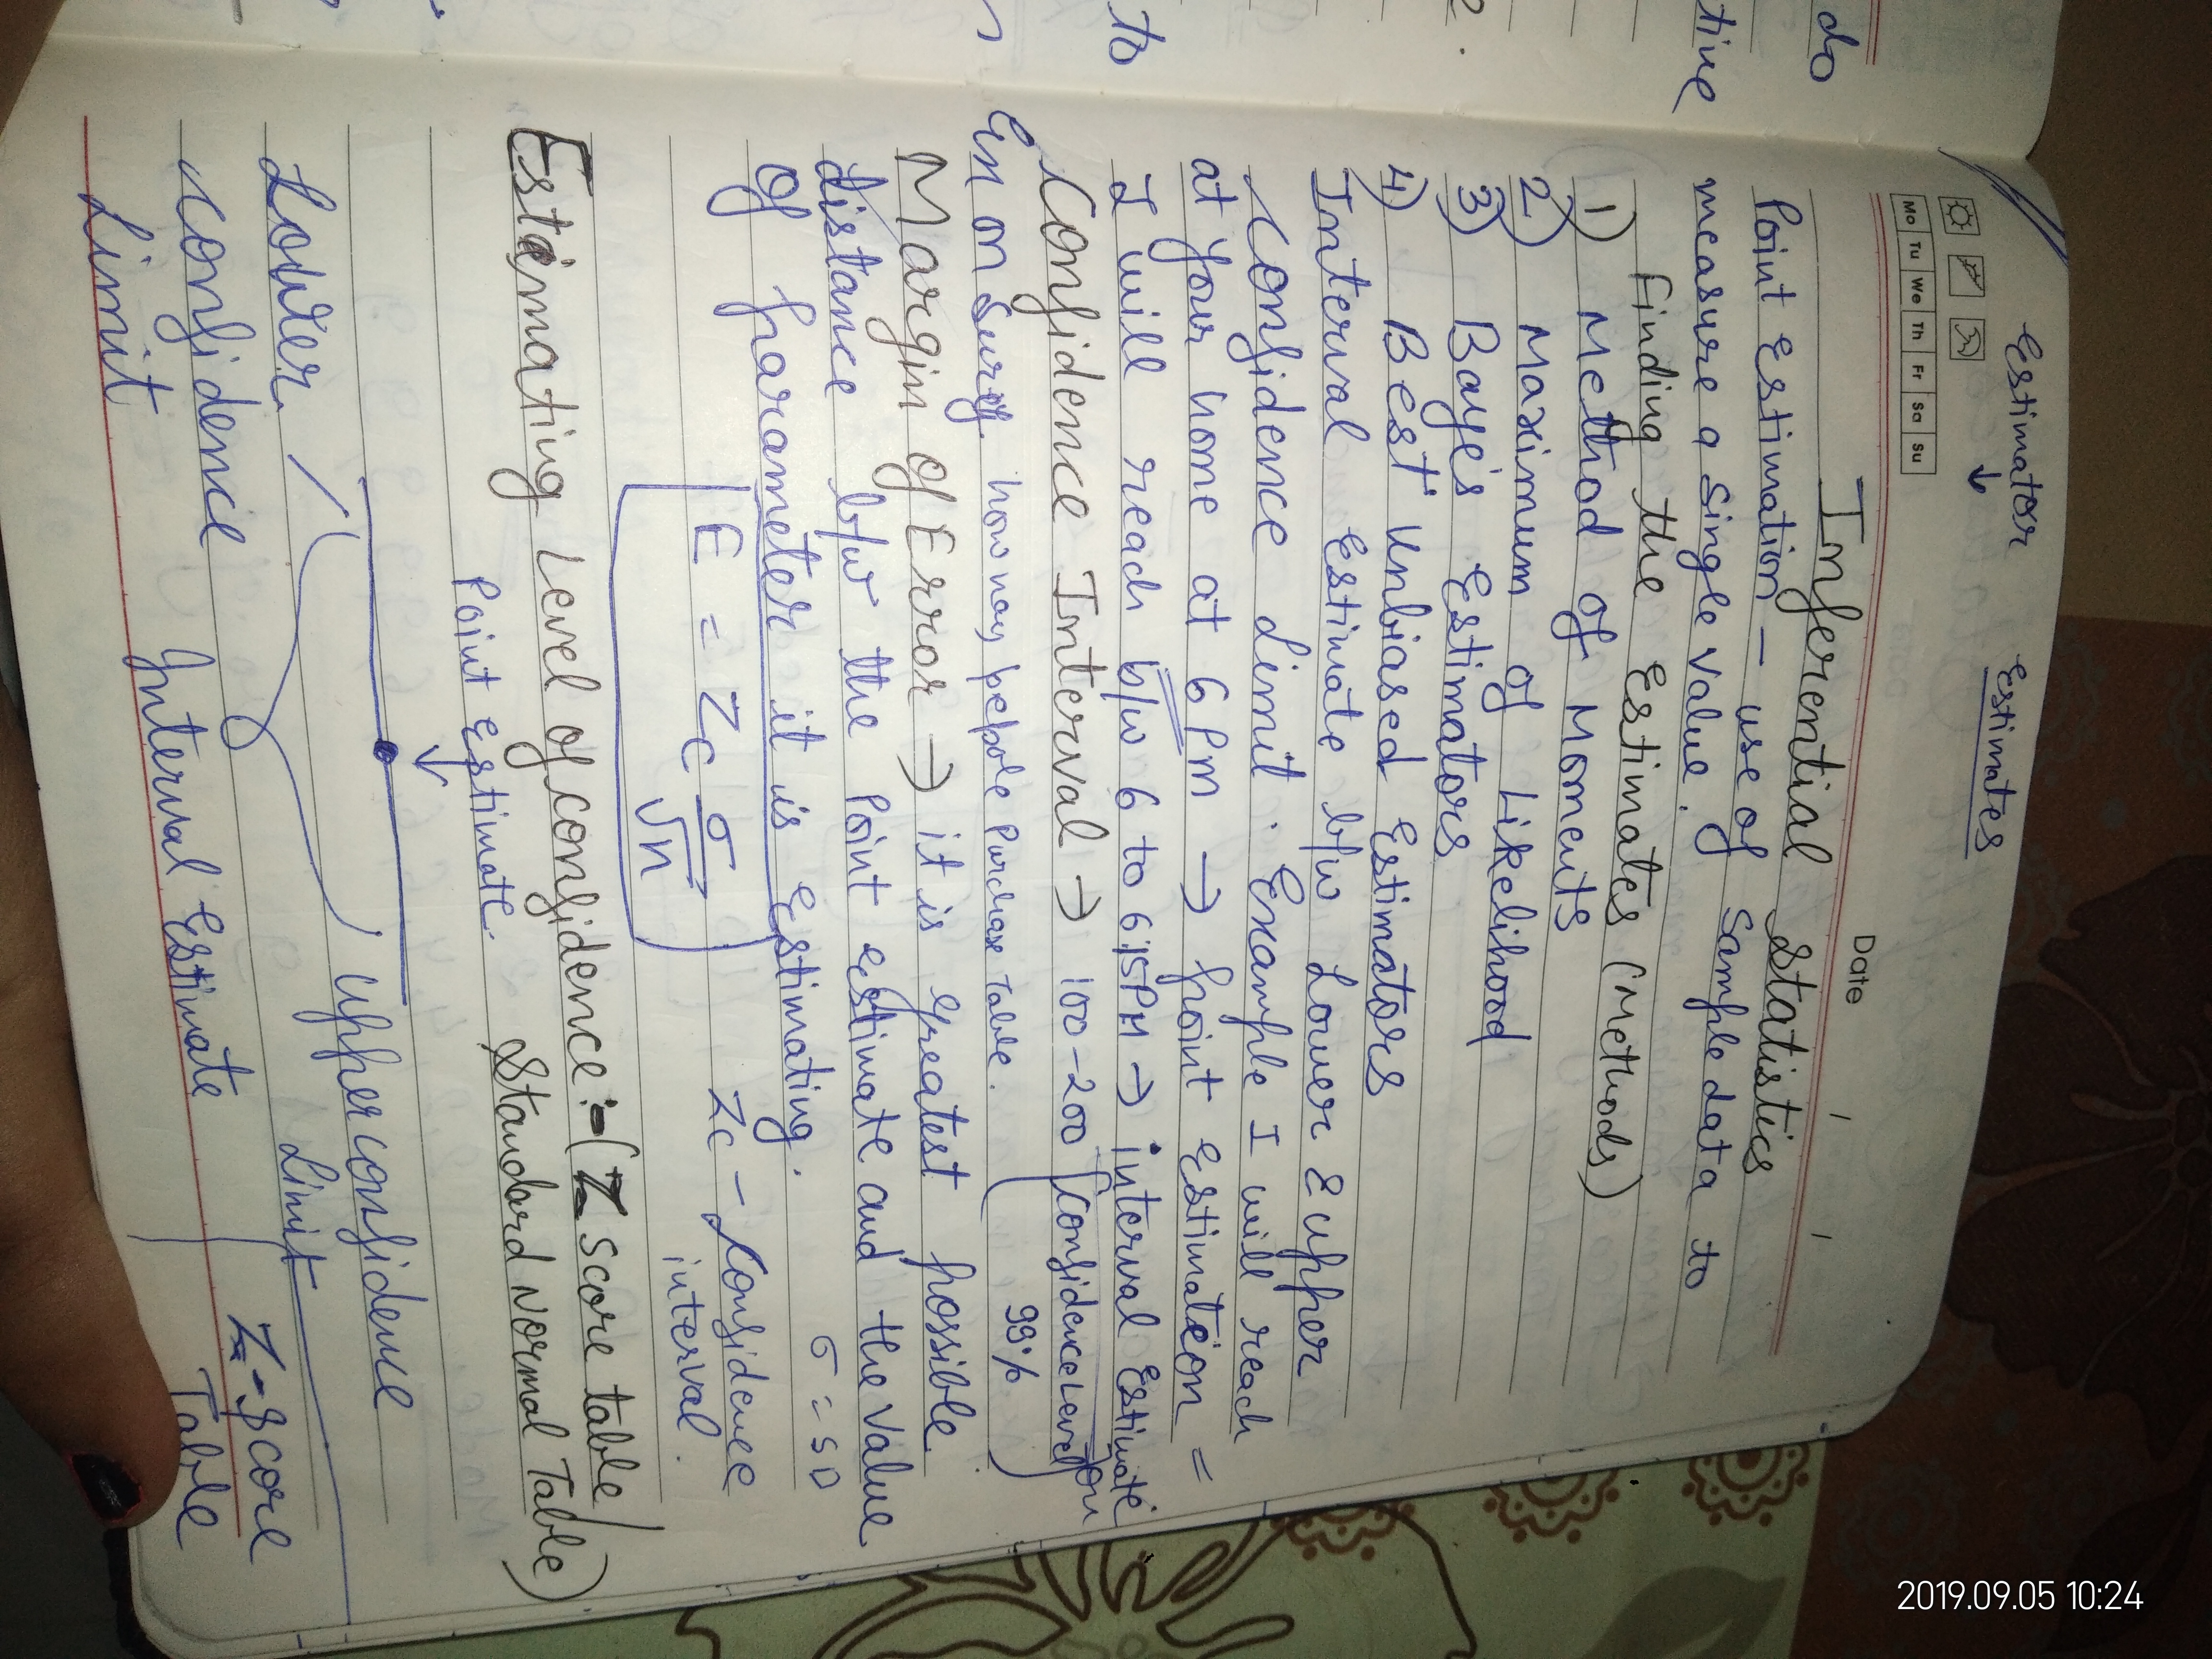 Estimator Estimates
↓
Mo Tu We Th Fr Sa Su
Date / /
Inferential statistics
Point Estimation - use of sample data to
measure a single value.
Finding the Estimates (Methods)
1) Method of Moments
2) Maximum of Likelihood
3) Baye's Estimators
4) Best Unbiased Estimators
Interval Estimate b/w Lower & upper
Confidence Limit. Example I will reach
at your home at 6 Pm → point Estimation =
I will reach b/w 6 to 6:15PM → interval Estimate
Confidence Interval → 100-200 Confidence Level
99%
on Survey how many pepole Purchase Table.
Margin of Error → it is greatest possible
distance b/w the Point estimate and the value
of parameter it is Estimating.
σ = SD
E = Zc σ/√n
Zc - Confidence
interval.
Estimating Level of confidence :- (Z score table/
Standard Normal Table)
Point Estimate.
↓
Lower
confidence
Limit
upper confidence
Limit
Interval Estimate
Z-score
Table
do
tive
2.
to
2019.09.05 10:24